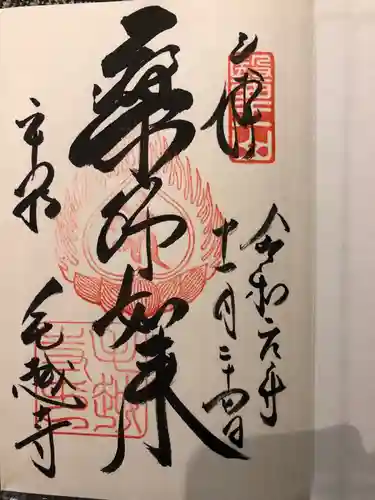 奉拝
令和元年
十一月二十四日
薬師如来
平泉
毛越寺